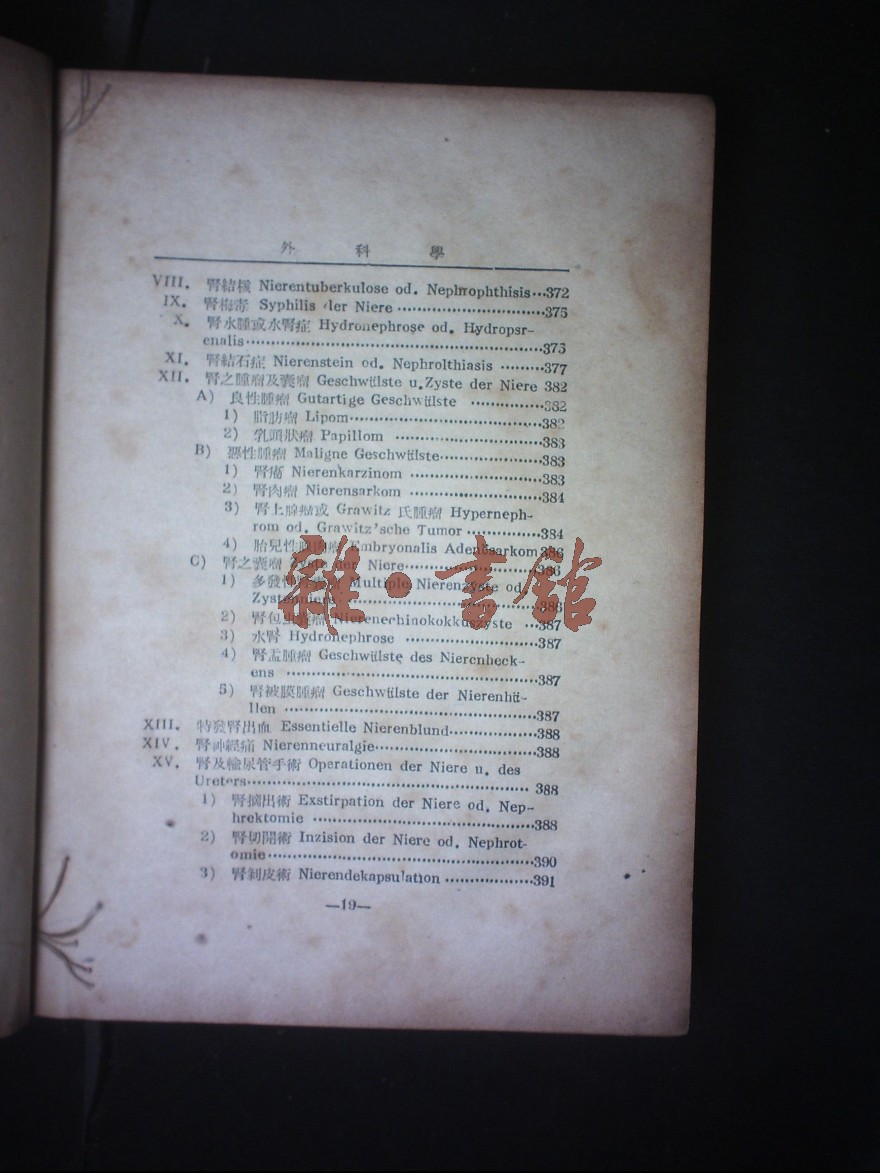 外 科 學
VIII. 腎結核 Nierentuberkulose od. Nephrophthisis···372
IX. 腎梅毒 Syphilis der Niere ························375
X. 腎水腫或水腎症 Hydronephrose od. Hydropsr-
enalis················································375
XI. 腎結石症 Nierenstein od. Nephrolthiasis ·········377
XII. 腎之腫瘤及囊瘤 Geschwülste u.Zyste der Niere 382
A) 良性腫瘤 Gutartige Geschwülste ············382
1) 脂肪瘤 Lipom·······························382
2) 乳頭狀瘤 Papillom ························383
B) 惡性腫瘤 Maligne Geschwülste·················383
1) 腎癌 Nierenkarzinom ······················383
2) 腎肉瘤 Nierensarkom ······················384
3) 腎上腺瘤或 Grawitz 氏腫瘤 Hyperneph-
rom od. Grawitz'sche Tumor ············384
4) 胎兒性腺肉瘤 Embryonalis Adenosarkom 386
C) 腎之囊瘤 Zyste der Niere·····················386
1) 多發性腎囊瘤 Multiple Nierenzyste od.
Zystenniere ·································386
2) 腎包虫囊瘤 Nierenechinokokkuszyste ···387
3) 水腎 Hydronephrose ······················387
4) 腎盂腫瘤 Geschwülste des Nierenbeck-
ens ·············································387
5) 腎被膜腫瘤 Geschwülste der Nierenhü-
llen ·············································387
XIII. 特發腎出血 Essentielle Nierenblund··············388
XIV. 腎神經痛 Nierenneuralgie··························388
XV. 腎及輸尿管手術 Operationen der Niere u. des
Ureters················································ 388
1) 腎摘出術 Exstirpation der Niere od. Nep-
hrektomie ·····································388
2) 腎切開術 Inzision der Niere od. Nephrot-
omie·············································390
3) 腎剝皮術 Nierendekapsulation ···············391
—19—
雜·書館